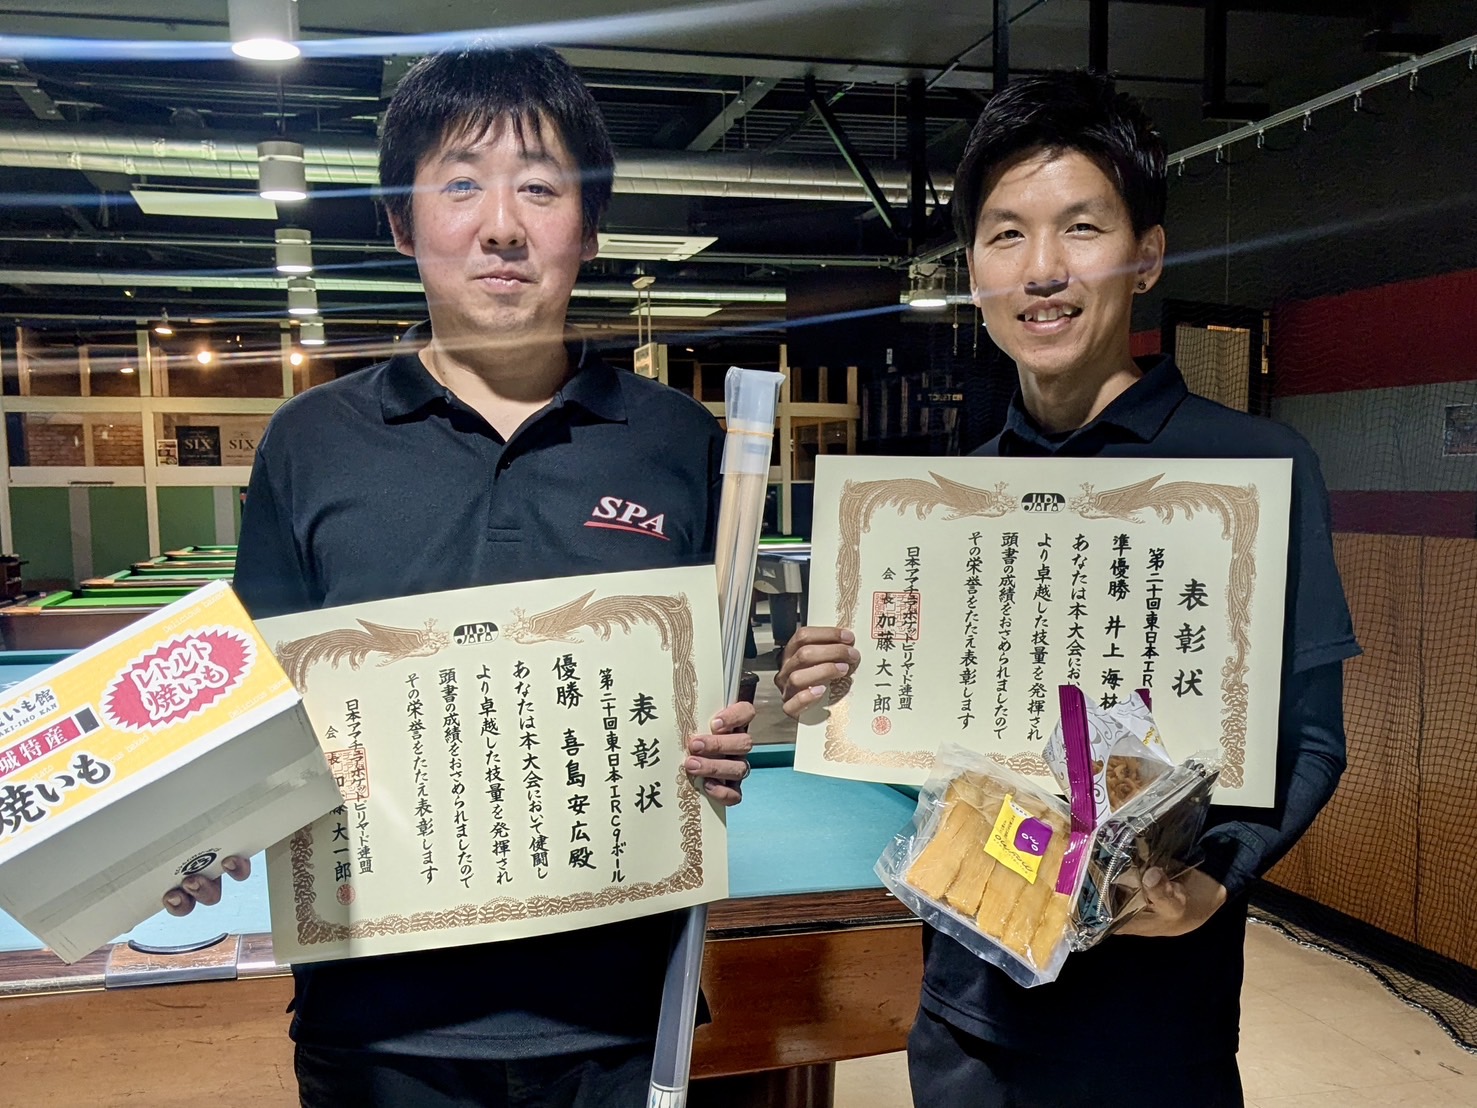 SIX
SIX
SPA
レトルト
焼いも
いも館
AKI-IMO KAN
城特産
焼いも
JAPA
表彰状
第二十回東日本IRC9ボール
優勝 喜島安広殿
あなたは本大会において健闘し
より卓越した技量を発揮され
頭書の成績をおさめられましたので
その栄誉をたたえ表彰します
日本アマチュアポケットビリヤード連盟
会長 加藤大一郎
JAPA
表彰状
第二十回東日本IRC
準優勝 井上海
あなたは本大会におい
より卓越した技量を発揮され
頭書の成績をおさめられましたので
その栄誉をたたえ表彰します
日本アマチュアポケットビリヤード連盟
会長 加藤大一郎